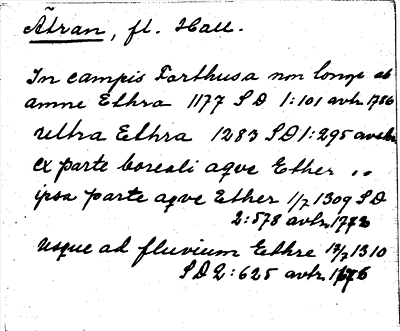 Ätran, fl. Hall.
In campis Forthusa non longe ab
amne Ethra 1177 SD 1:101 avtr 1786
ultra Ethra 1283 SD 1:295 avskr
ex parte boreali aqve Ether ..
ipsa parte aqve Ether 1/7 1309 SD
2:578 avtr.
usque ad fluvium Ethre 1310
SD 2:625 avtr.